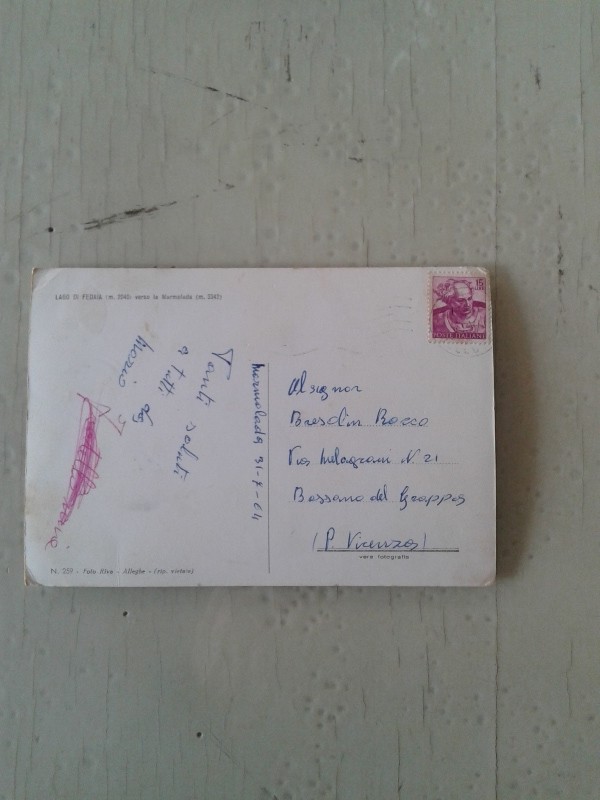 LAGO DI FEDAIA (m. 2040) verso la Marmolada (m. 3342)
15
POSTE ITALIANE
Tanti saluti
a tutti da
Mario
Marmolada 31-7-64
Al signor
Bresolin Rocco
Via Melagrani N. 21
Bassano del Grappa
(P. Vicenza)
vera fotografia
N. 359 - Foto Riva - Alleghe - (rip. vietata)